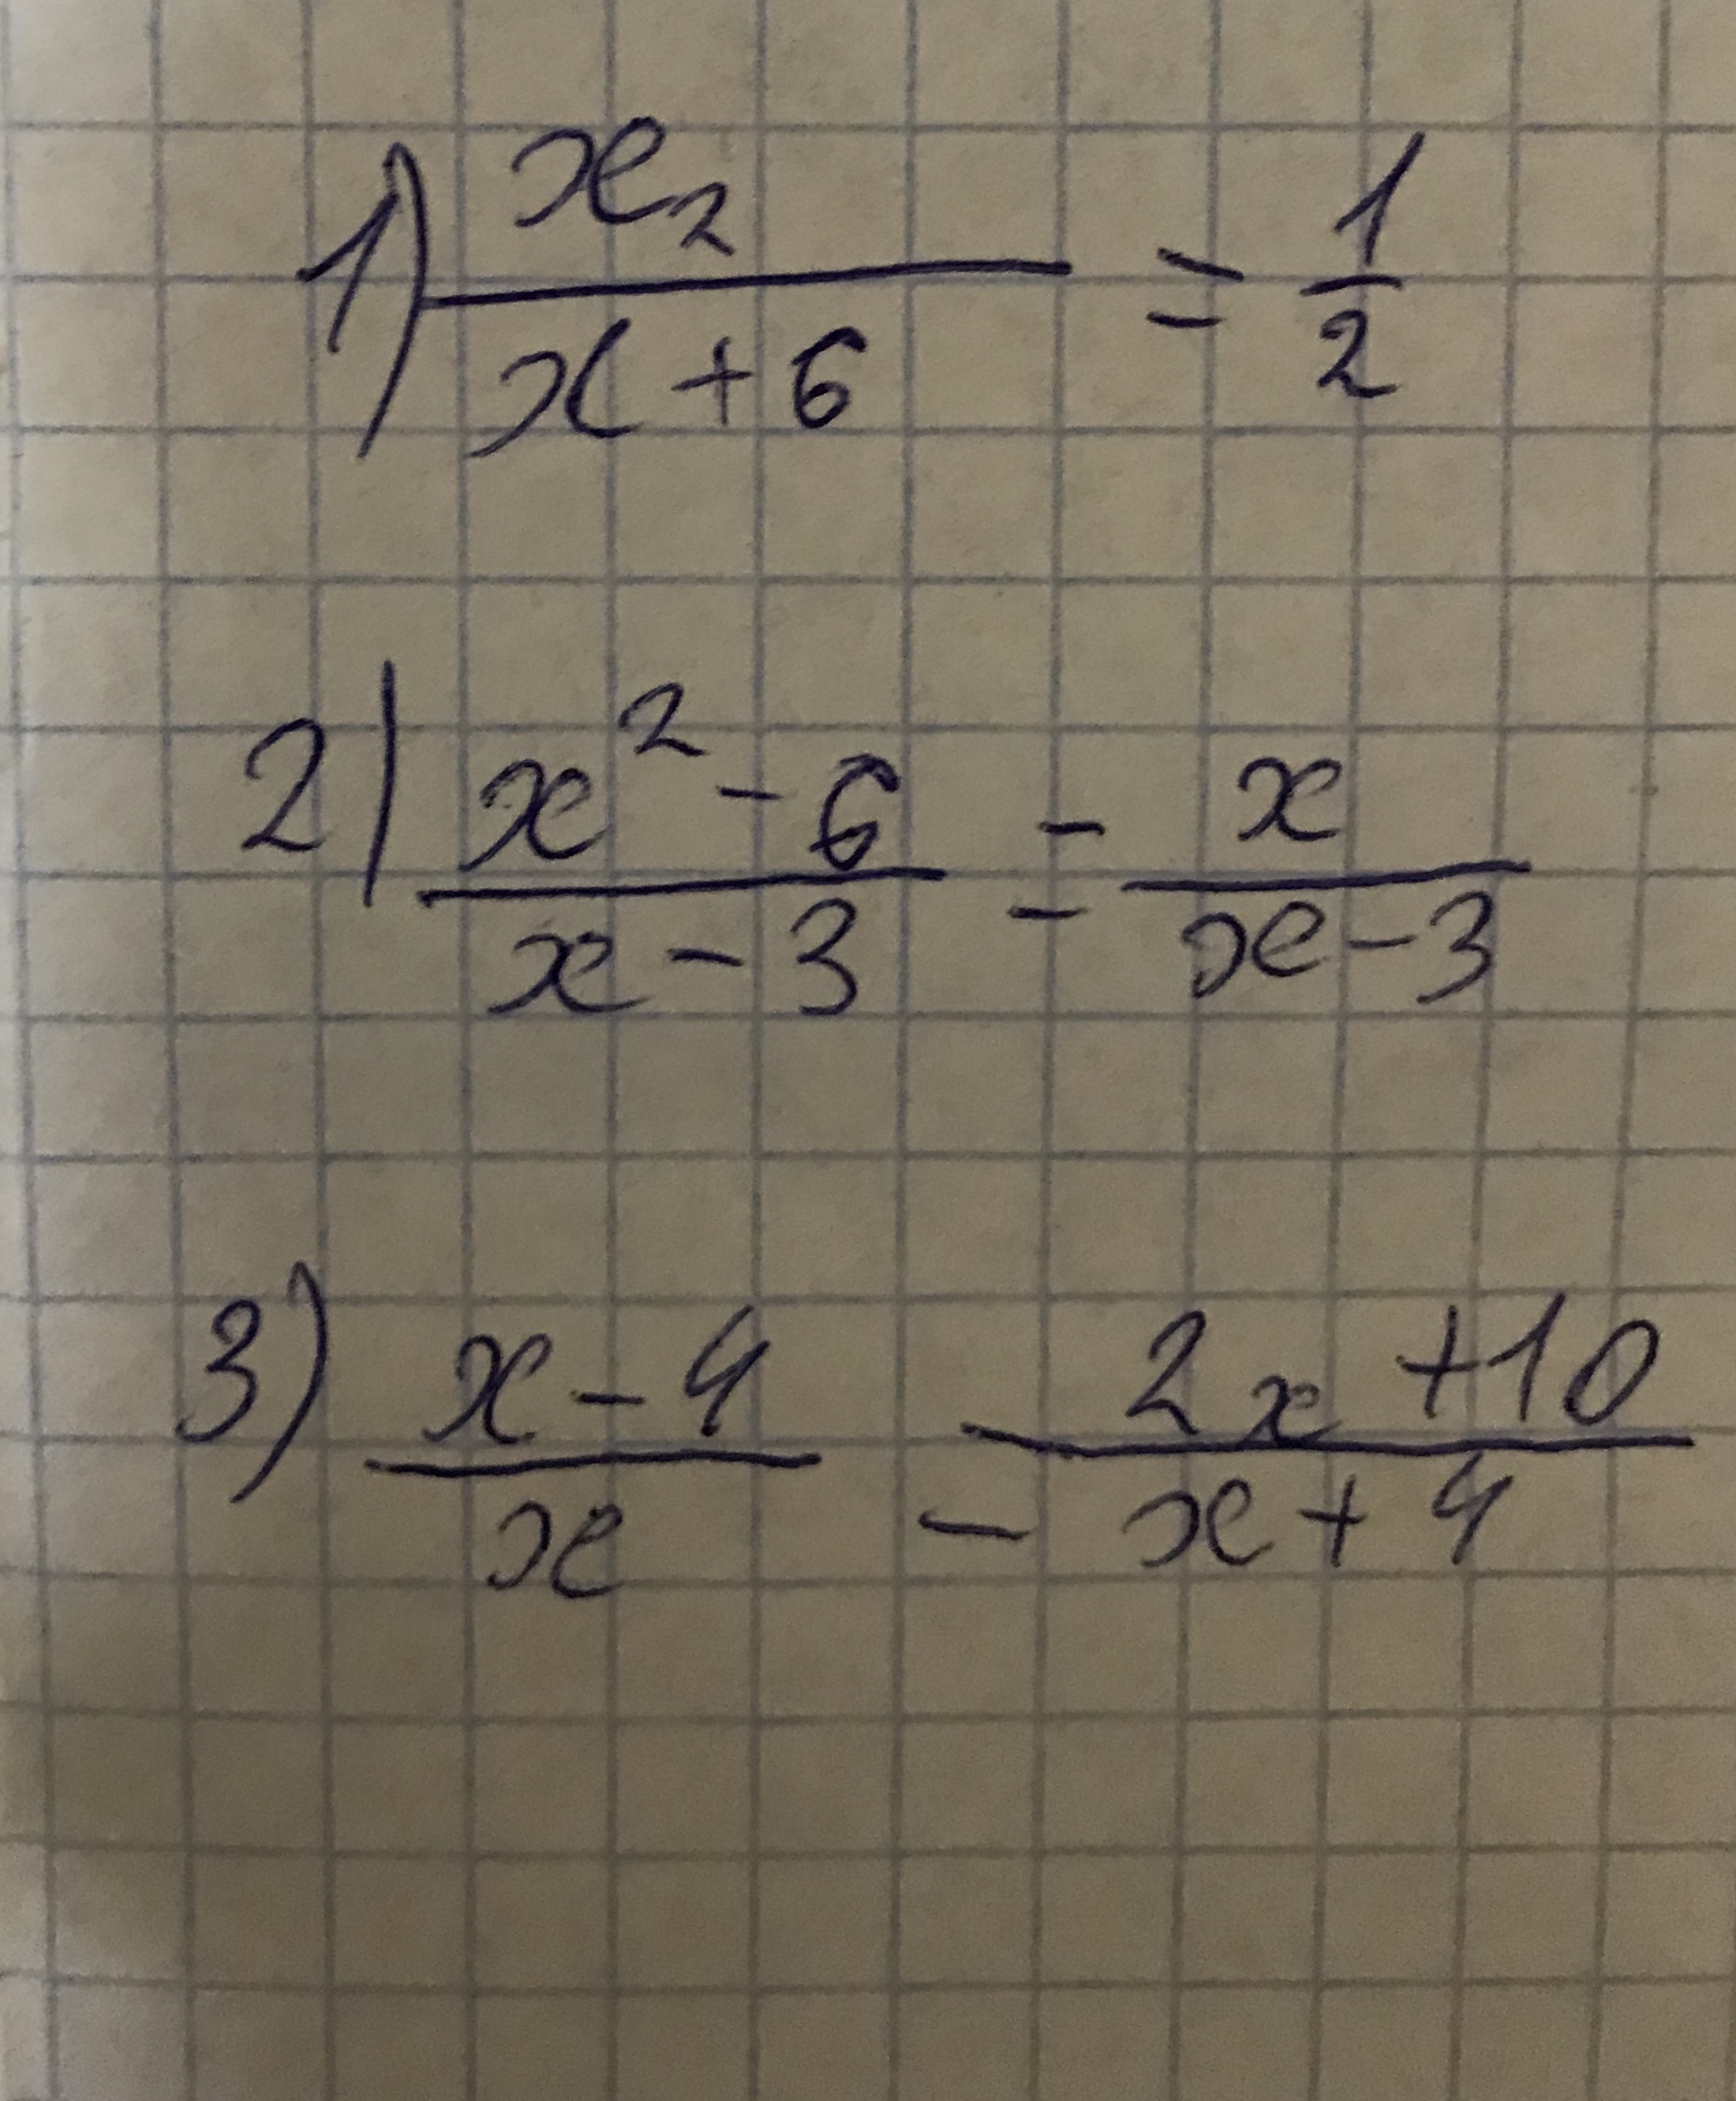 1) x₂/(x+6) = 1/2
2) (x²-6)/(x-3) = x/(x-3)
3) (x-4)/x - (2x+10)/(x+4)